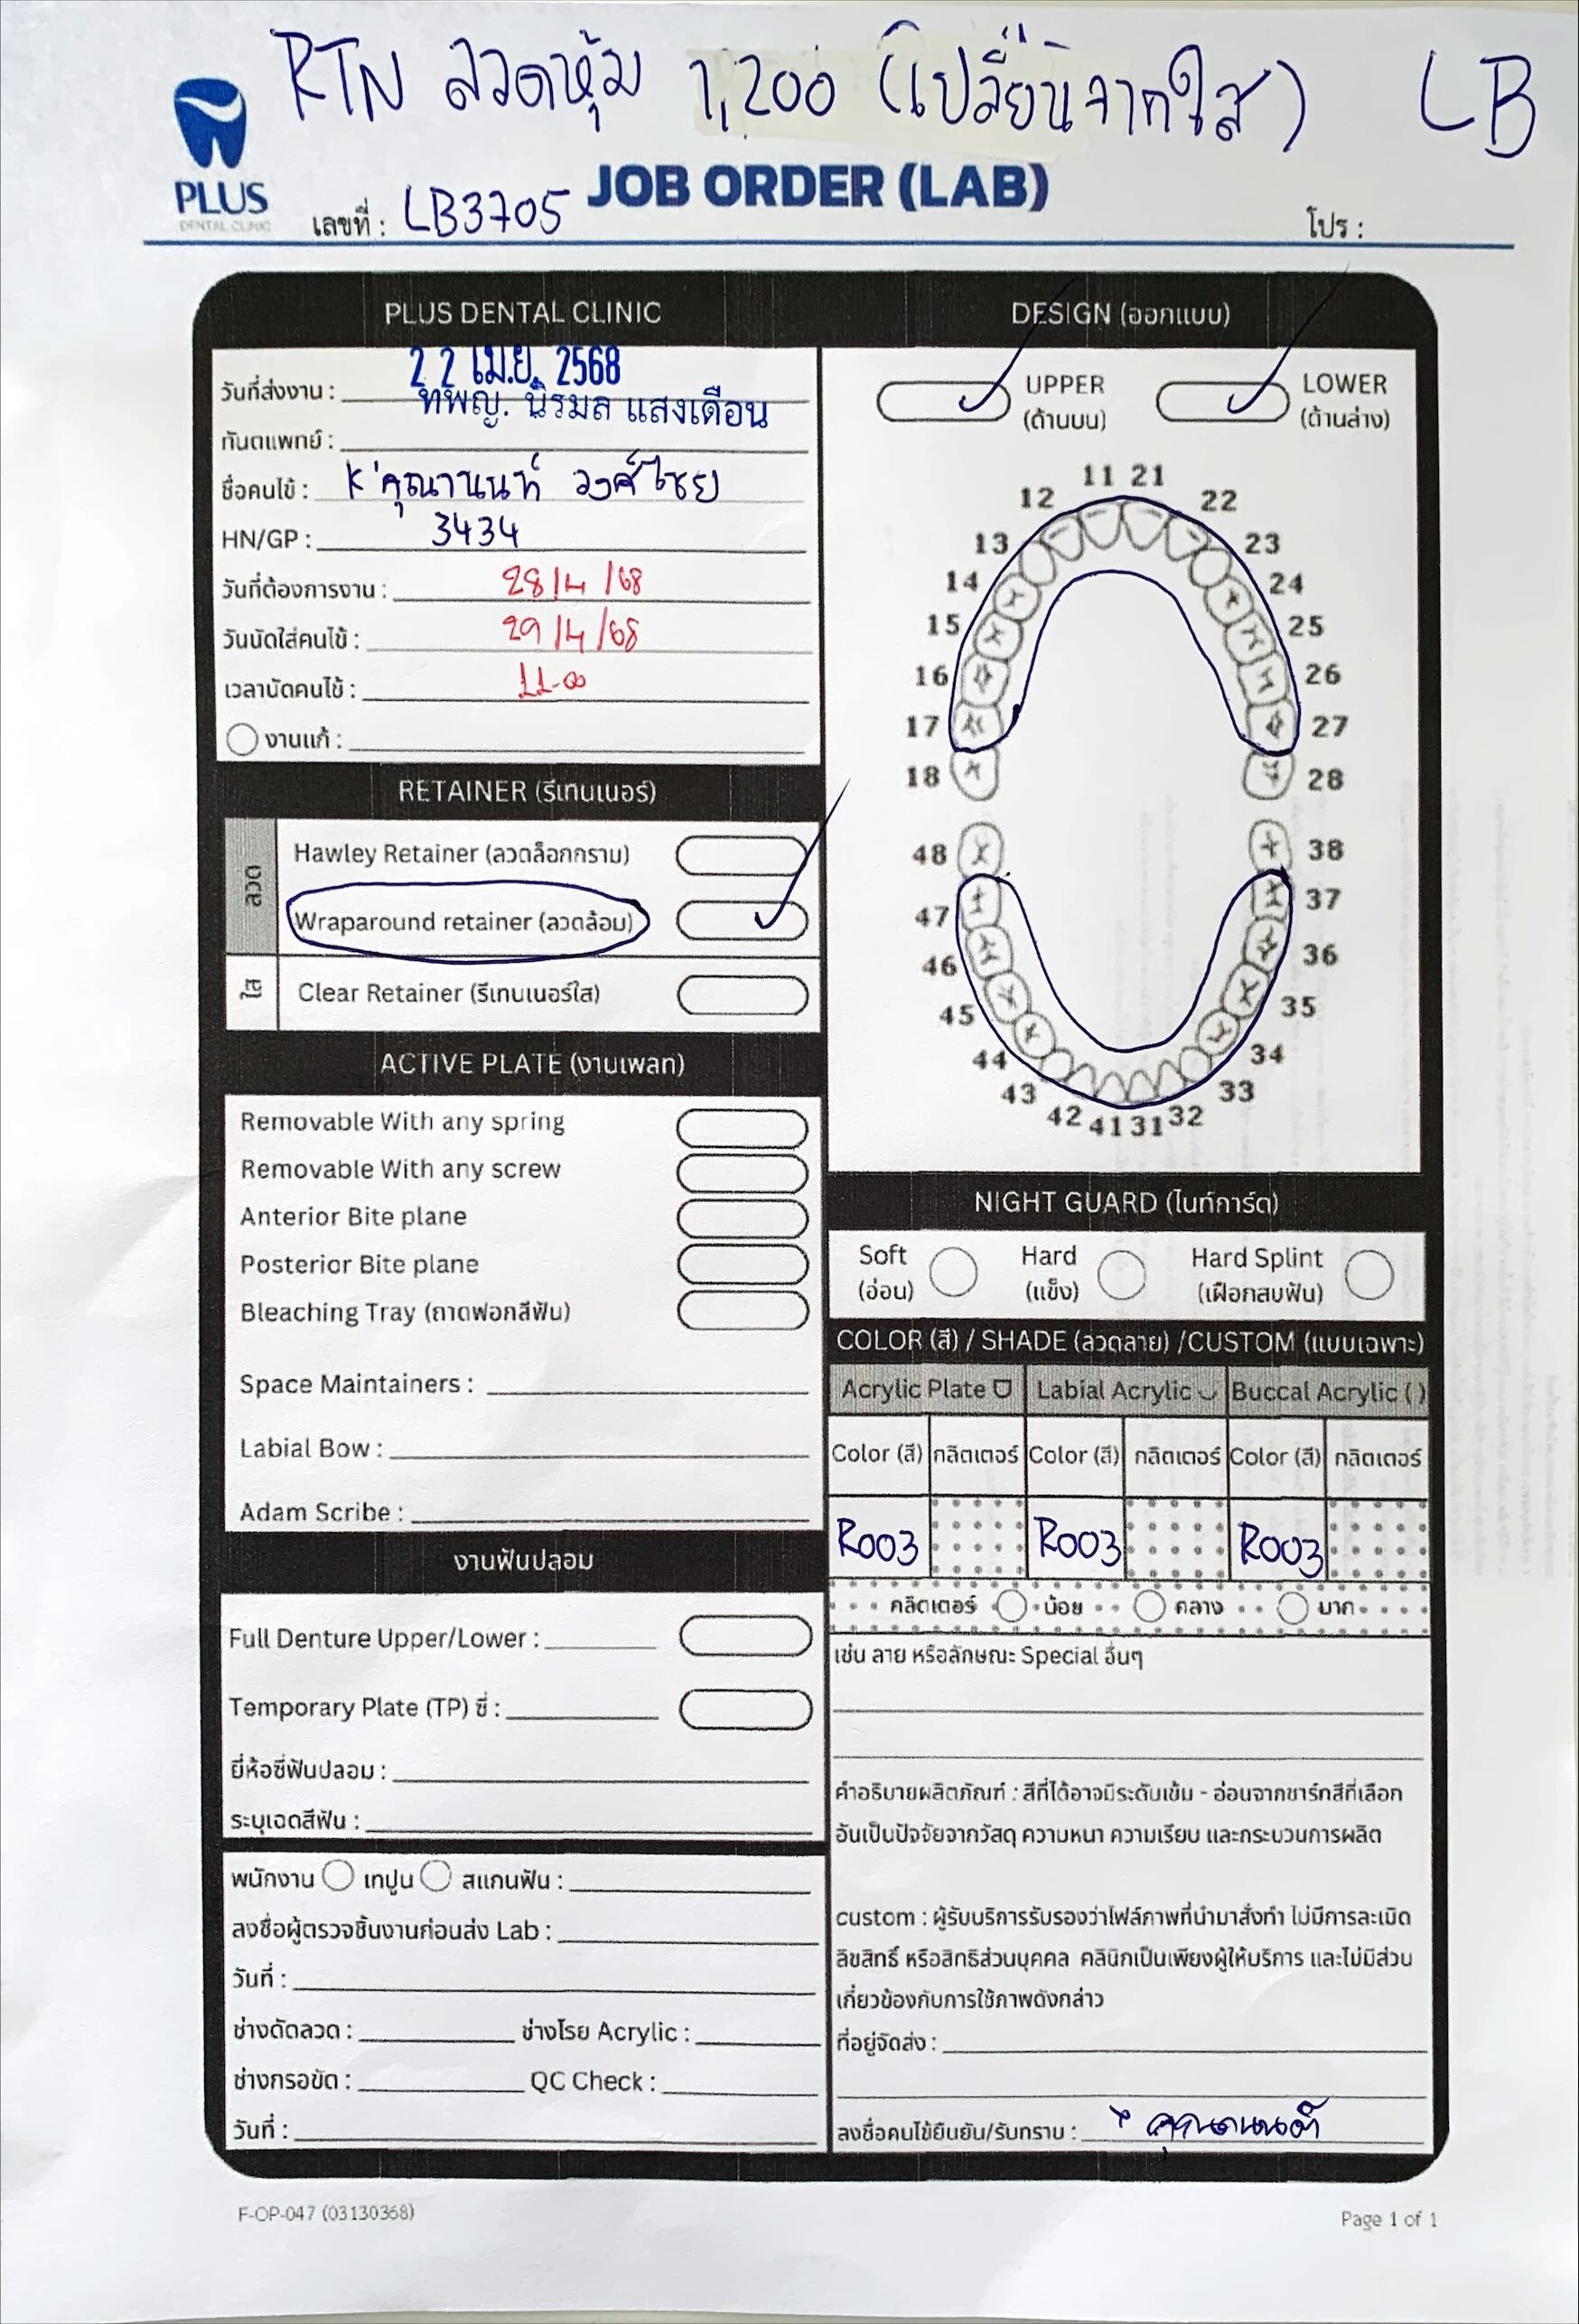 RTN ลวดหุ้ม 1,200 (เปลี่ยนจากใส) LB
PLUS
DENTAL CLINIC
JOB ORDER (LAB)
เลขที่ : LB3705
โปร :
PLUS DENTAL CLINIC
วันที่ส่งงาน : 22 เม.ย. 2568
ทันตแพทย์ : ทพญ. นิรมล แสงเดือน
ชื่อคนไข้ : K'คุณานนท์ วงศ์ไชย
HN/GP : 3434
วันที่ต้องการงาน : 28/4/68
วันนัดใส่คนไข้ : 29/4/68
เวลานัดคนไข้ : 11-00
งานแก้ :
RETAINER (รีเทนเนอร์)
ลวด
Hawley Retainer (ลวดล็อกกราม)
Wraparound retainer (ลวดล้อม)
ใส
Clear Retainer (รีเทนเนอร์ใส)
ACTIVE PLATE (งานเพลท)
Removable With any spring
Removable With any screw
Anterior Bite plane
Posterior Bite plane
Bleaching Tray (ถาดฟอกสีฟัน)
Space Maintainers :
Labial Bow :
Adam Scribe :
งานฟันปลอม
Full Denture Upper/Lower :
Temporary Plate (TP) ซี่ :
ยี่ห้อซี่ฟันปลอม :
ระบุเฉดสีฟัน :
พนักงาน เทปูน สแกนฟัน :
ลงชื่อผู้ตรวจชิ้นงานก่อนส่ง Lab :
วันที่ :
ช่างดัดลวด : ช่างโรย Acrylic :
ช่างกรอขัด : QC Check :
วันที่ :
DESIGN (ออกแบบ)
UPPER
(ด้านบน)
LOWER
(ด้านล่าง)
11 21
12 22
13 23
14 24
15 25
16 26
17 27
18 28
48 38
47 37
46 36
45 35
44 34
43 33
42 41 31 32
NIGHT GUARD (ไนท์การ์ด)
Soft
(อ่อน)
Hard
(แข็ง)
Hard Splint
(เฝือกสบฟัน)
COLOR (สี) / SHADE (ลวดลาย) /CUSTOM (แบบเฉพาะ)
Acrylic Plate Labial Acrylic Buccal Acrylic ( )
Color (สี) กลิตเตอร์ Color (สี) กลิตเตอร์ Color (สี) กลิตเตอร์
R003 R003 R003
กลิตเตอร์ น้อย กลาง มาก
เช่น ลาย หรือลักษณะ Special อื่นๆ
คำอธิบายผลิตภัณฑ์ : สีที่ได้อาจมีระดับเข้ม - อ่อนจากชาร์ทสีที่เลือก
อันเป็นปัจจัยจากวัสดุ ความหนา ความเรียบ และกระบวนการผลิต
custom : ผู้รับบริการรับรองว่าไฟล์ภาพที่นำมาสั่งทำ ไม่มีการละเมิด
ลิขสิทธิ์ หรือสิทธิส่วนบุคคล คลินิกเป็นเพียงผู้ให้บริการ และไม่มีส่วน
เกี่ยวข้องกับการใช้ภาพดังกล่าว
ที่อยู่จัดส่ง :
ลงชื่อคนไข้ยืนยัน/รับทราบ : คุณานนท์
F-OP-047 (03130368)
Page 1 of 1